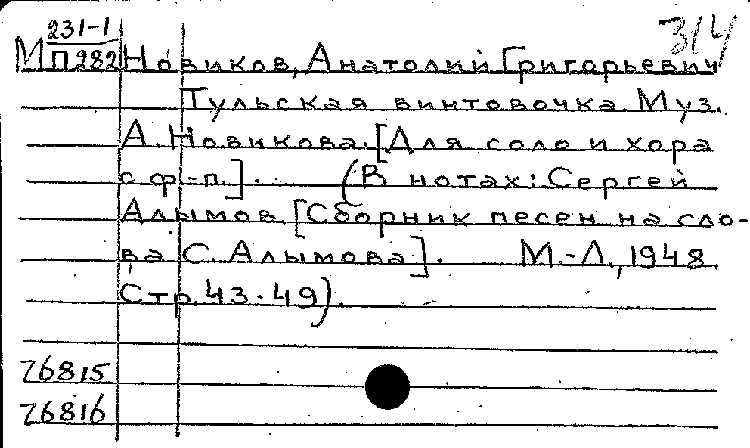 314
231-1
М П282 Новиков, Анатолий Григарьевич
Тульская винтовочка. Муз.
А. Новикова. [Для соло и хора
с ф-п.]. (В нотах: Сергей
Алымов. [Сборник песен на сло-
ва С. Алымова]. М.-Л., 1948.
Стр. 43-49).
76815
76816